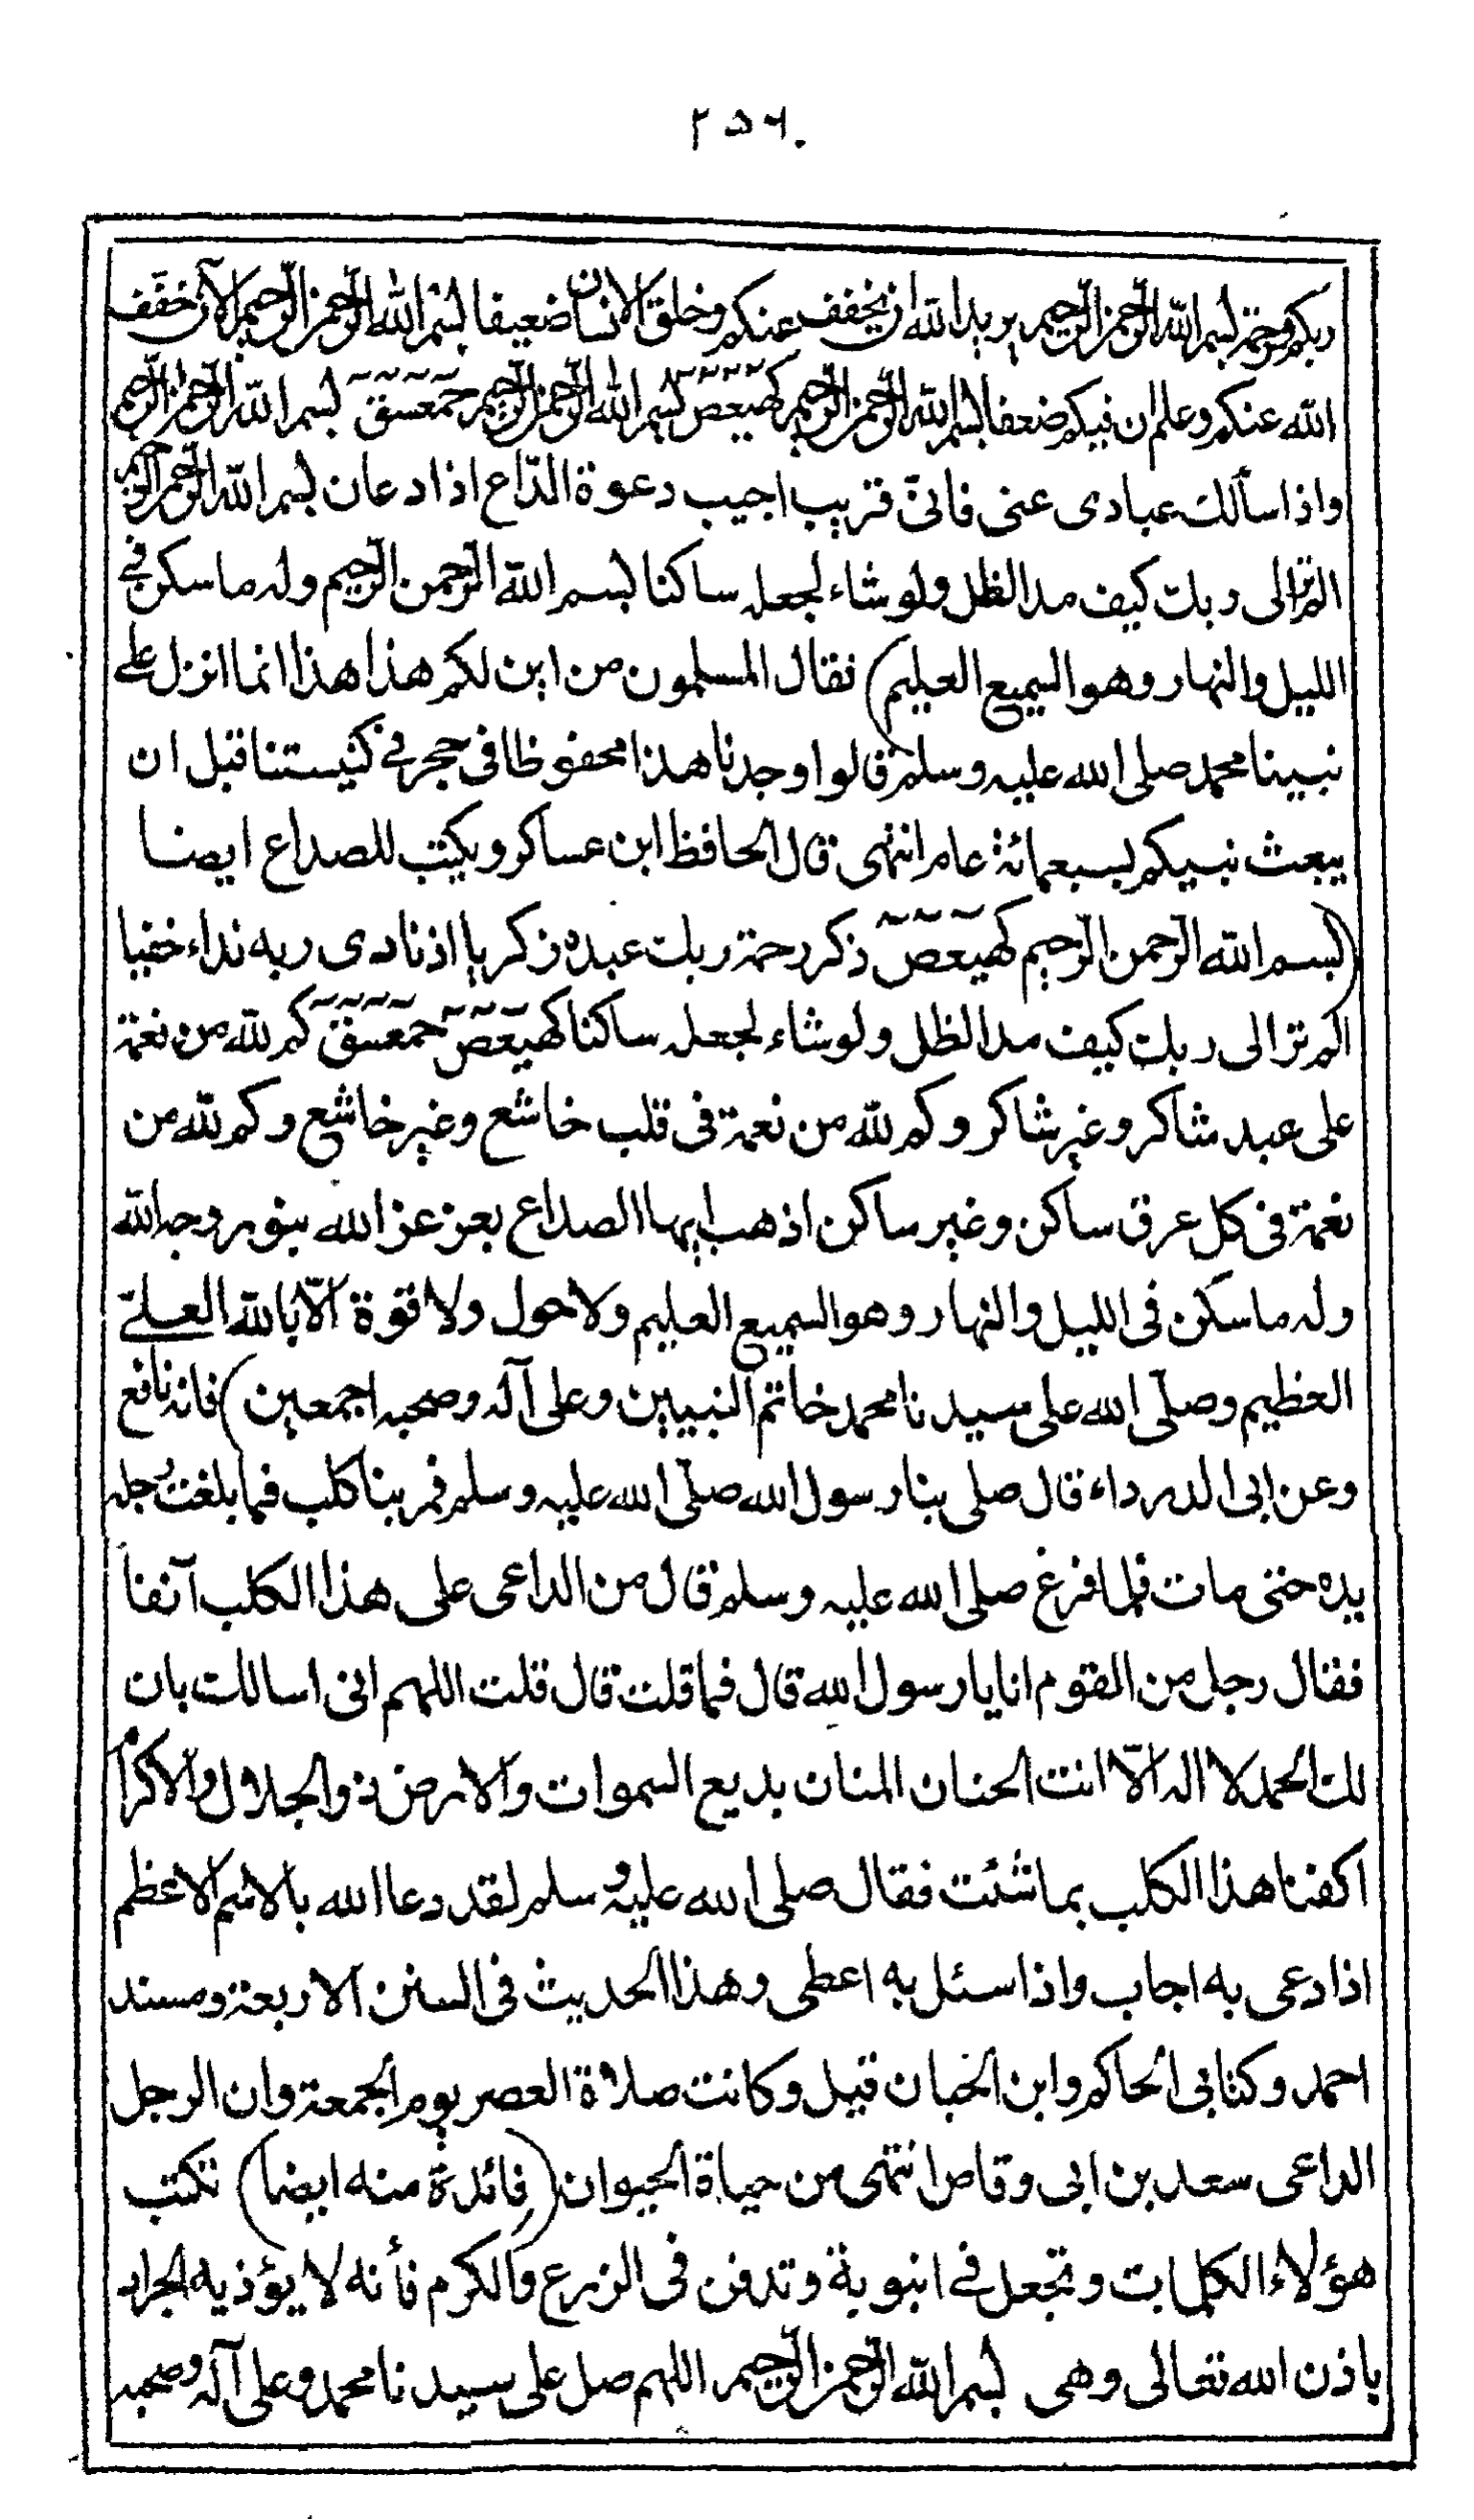 ٢٥٦
ربكم ورحمة بسم الله الرحمن الرحيم يريد الله ان يخفف عنكم وخلق الانسان ضعيفا بسم الله الرحمن الرحيم الآن خفف
الله عنكم وعلم ان فيكم ضعفا بسم الله الرحمن الرحيم كهيعص بسم الله الرحمن الرحيم حمعسق بسم الله الرحمن الرحيم
واذا سألك عبادى عنى فانىّ قريب اجيب دعوة الدّاع اذا دعان بسم الله الرحمن الرحيم
الم تر الى ربك كيف مد الظل ولو شاء لجعله ساكنا بسم الله الرّحمن الرّحيم وله ما سكن فى
الليل والنهار وهو السميع العليم) فقال المسلمون من اين لكم هذا هذا انما انزل على
نبينا محمد صلى الله عليه وسلم قالوا وجدنا هذا محفوظا فى حجر فى كنيستنا قبل ان
يبعث نبيكم بسبعمائة عام انتهى قال الحافظ ابن عساكر ويكتب للصداع ايضا
(بسم الله الرحمن الرحيم كهيعص ذكر رحمة ربك عبده زكريا اذ نادى ربه نداء خفيا
الم تر الى ربك كيف مد الظل ولو شاء لجعله ساكنا كهيعص حمعسق كم لله من نعمة
على عبد شاكر وغير شاكر وكم لله من نعمة فى قلب خاشع وغير خاشع وكم لله من
نعمة فى كل عرق ساكن وغير ساكن اذهب ايها الصداع بعز عز الله بنور وجه الله
وله ما سكن فى الليل والنهار وهو السميع العليم ولا حول ولا قوة الّا بالله العلىّ
العظيم وصلّى الله على سيدنا محمد خاتم النبيين وعلى آله وصحبه اجمعين) فانه نافع
وعن ابى الدرداء قال صلى بنا رسول الله صلّى الله عليه وسلم فمر بنا كلب فما بلغت رجله
يده حتى مات فلما فرغ صلى الله عليه وسلم قال من الداعى على هذا الكلب آنفا
فقال رجل من القوم انا يا رسول الله قال فما قلت قال قلت اللهم انى اسالك بان
لك الحمد لا اله الّا انت الحنان المنان بديع السموات والارض ذو الجلال والاكرام
اكفنا هذا الكلب بما شئت فقال صلى الله عليه وسلم لقد دعا الله بالاسم الاعظم
اذا دعى به اجاب واذا سئل به اعطى وهذا الحديث فى السنن الاربعة ومسند
احمد وكتابى الحاكم وابن الخبان قيل وكانت صلاة العصر يوم الجمعة وان الرجل
الداعى سعد بن ابى وقاص انتهى من حياة الحيوان (فائدة منه ايضا) تكتب
هؤلاء الكلمات وتجعل فى انبوبة وتدفن فى الزرع والكرم فأنه لا يؤذيه الجراد
باذن الله تعالى وهى بسم الله الرحمن الرحيم اللهم صل على سيدنا محمد وعلى آله وصحبه